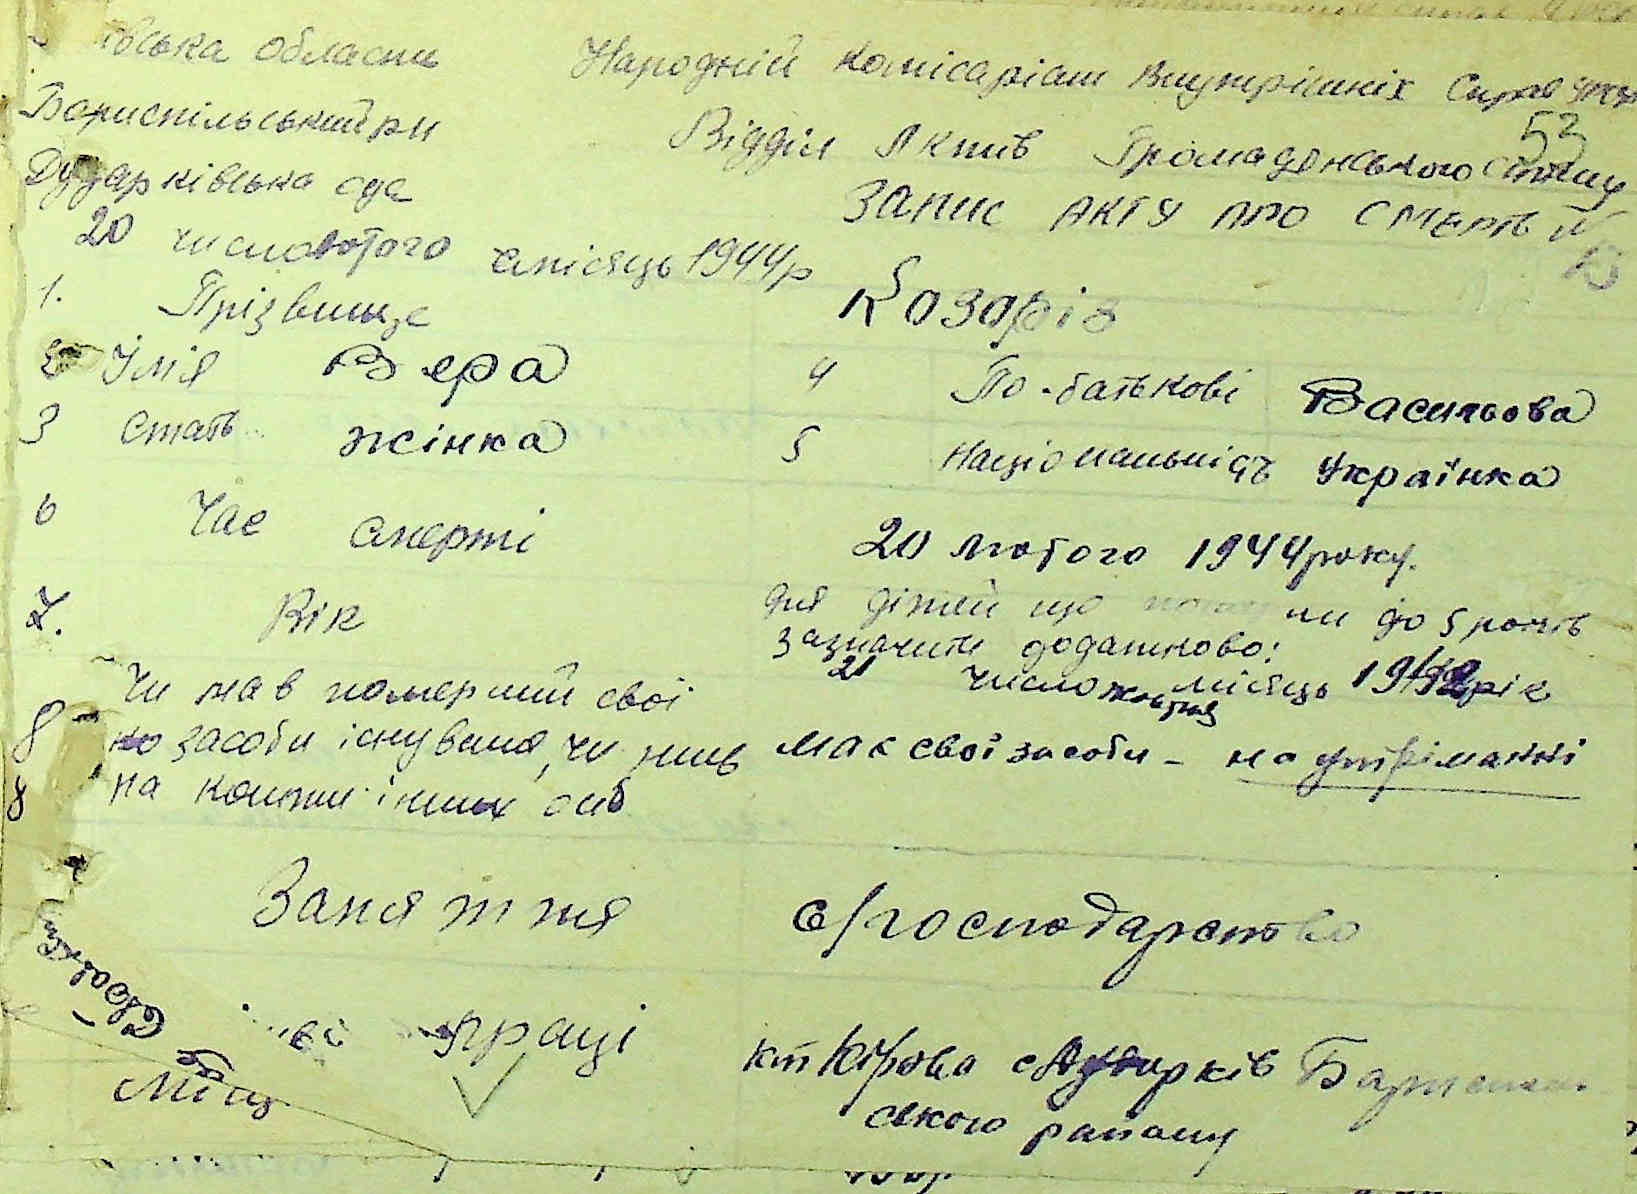 ївська області
Народній Комісаріат Внутрішніх Справ УРСР
53
Бориспільський рн
Відділ Актив Громадянського Стану
Дударківська с/рада
ЗАПИС АКТУ ПРО СМЕРТЬ №
20 число лютого місяць 1944 р
1. Прізвище Козаріз
2 Імія Вера 4 По-батькові Васильова
3 Стать жінка 5 Національність Українка
6 Час смерті 20 лютого 1944 року.
7. Вік для дітей що ли до 5 років
зазначити додатково:
21 число жовтня місяць рік
8 Чи мав померший свої
засоби існування, чи жив має свої засоби - на утріманні
на кошти інших осіб
Заняття с/господарство
Місц праці кт Кірова с Дударків
ського району